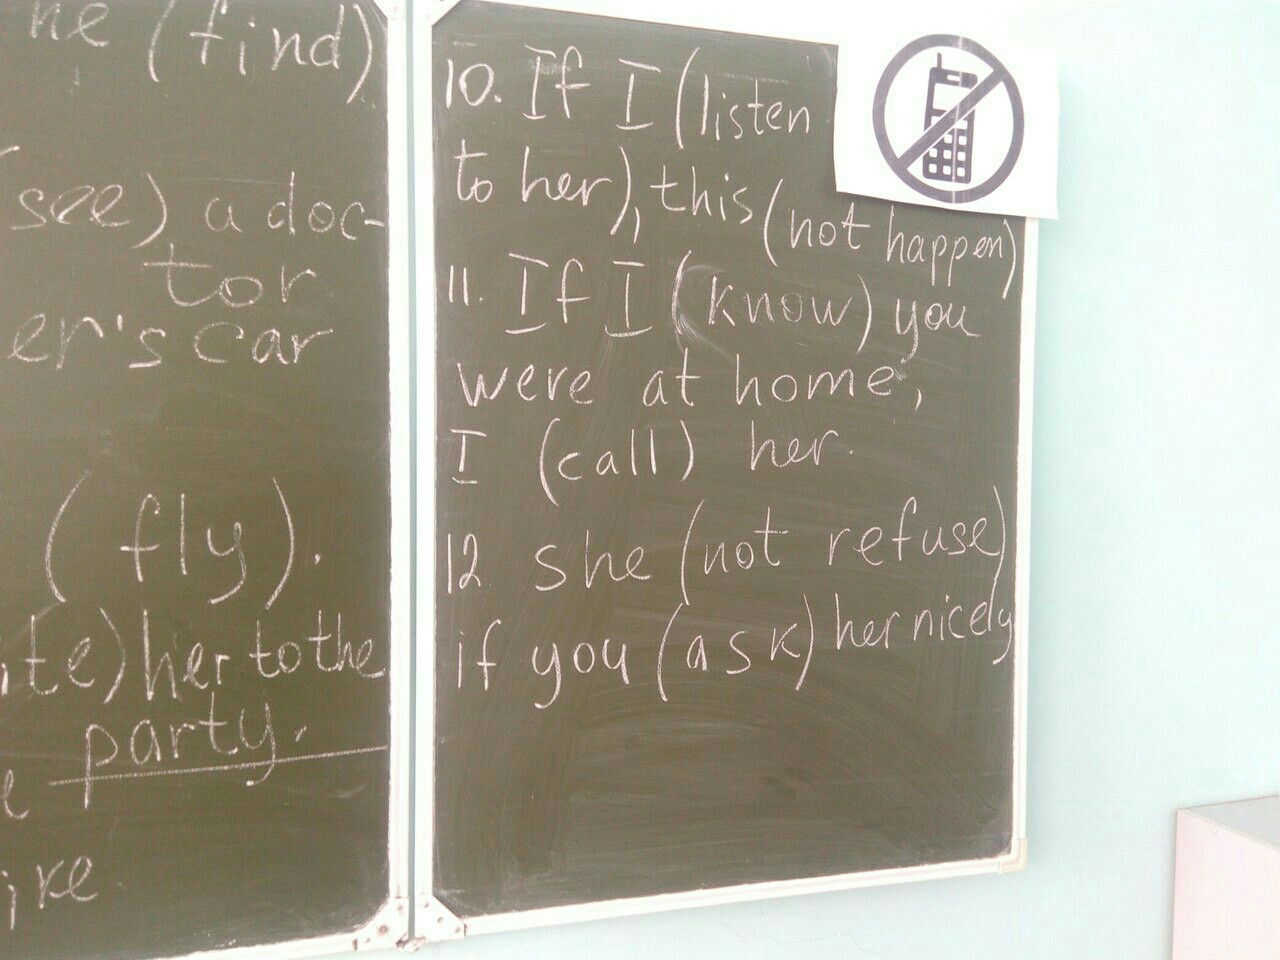 he (find)
see) a doc-
tor
er's car
(fly).
ite) her to the
party.
ike
10. If I (listen
to her), this (not happen)
11. If I (know) you
were at home,
I (call) her.
12. she (not refuse)
if you (ask) her nicely